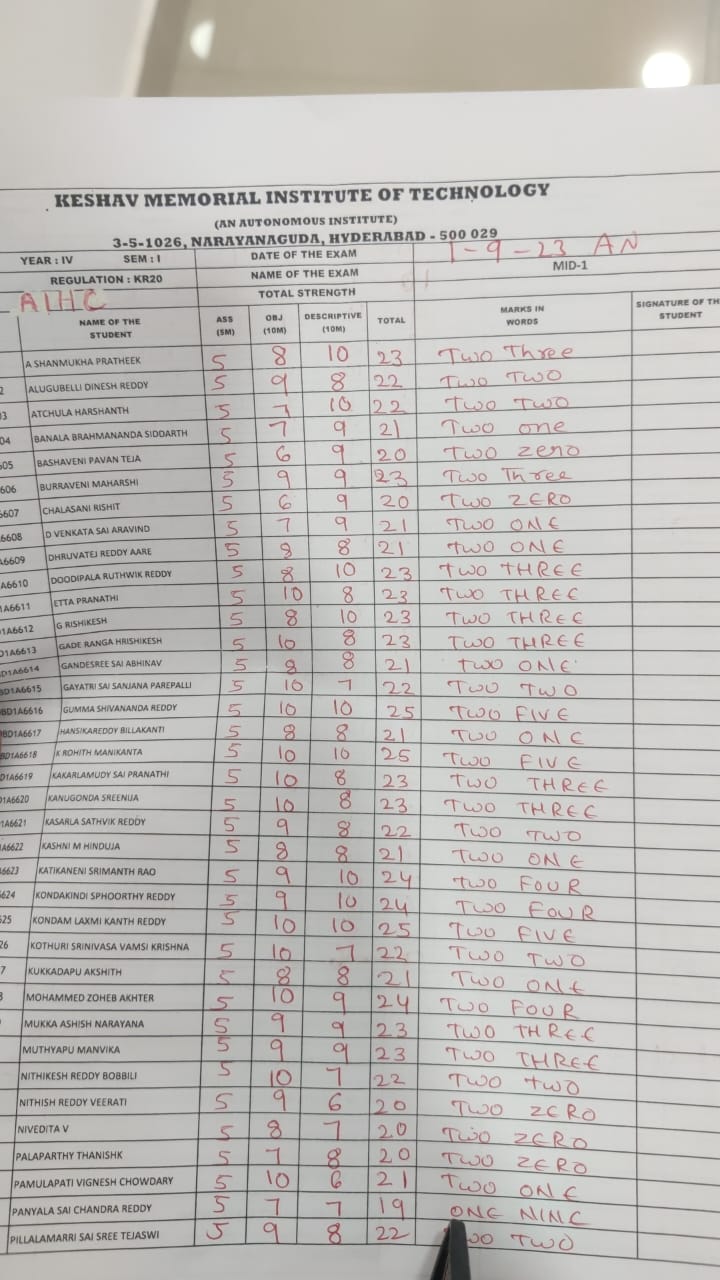 KESHAV MEMORIAL INSTITUTE OF TECHNOLOGY
(AN AUTONOMOUS INSTITUTE)
3-5-1026, NARAYANAGUDA, HYDERABAD - 500 029
YEAR : IV SEM : I DATE OF THE EXAM 1-9-23 AN
REGULATION : KR20 NAME OF THE EXAM MID-1
AIHC TOTAL STRENGTH
NAME OF THE STUDENT ASS (5M) OBJ (10M) DESCRIPTIVE (10M) TOTAL MARKS IN WORDS SIGNATURE OF TH STUDENT
A SHANMUKHA PRATHEEK 5 8 10 23 Two Three
2 ALUGUBELLI DINESH REDDY 5 9 8 22 Two Two
03 ATCHULA HARSHANTH 5 7 10 22 Two Two
04 BANALA BRAHMANANDA SIDDARTH 5 7 9 21 Two one
605 BASHAVENI PAVAN TEJA 5 6 9 20 Two zero
606 BURRAVENI MAHARSHI 5 9 9 23 Two Three
6607 CHALASANI RISHIT 5 6 9 20 Two ZERO
6608 D VENKATA SAI ARAVIND 5 7 9 21 Two ONE
A6609 DHRUVATEJ REDDY AARE 5 8 8 21 Two ONE
A6610 DOODIPALA RUTHWIK REDDY 5 8 10 23 Two THREE
1A6611 ETTA PRANATHI 5 10 8 23 Two THREE
1A6612 G RISHIKESH 5 8 10 23 Two THREE
D1A6613 GADE RANGA HRISHIKESH 5 10 8 23 Two THREE
D1A6614 GANDESREE SAI ABHINAV 5 8 8 21 Two ONE
BD1A6615 GAYATRI SAI SANJANA PAREPALLI 5 10 7 22 Two Two
BD1A6616 GUMMA SHIVANANDA REDDY 5 10 10 25 Two FIVE
BD1A6617 HANSIKAREDDY BILLAKANTI 5 8 8 21 Two ONE
BD1A6618 K ROHITH MANIKANTA 5 10 10 25 Two FIVE
D1A6619 KAKARLAMUDY SAI PRANATHI 5 10 8 23 Two THREE
01A6620 KANUGONDA SREENIJA 5 10 8 23 Two THREE
1A6621 KASARLA SATHVIK REDDY 5 9 8 22 Two TWO
A6622 KASHNI M HINDUJA 5 8 8 21 Two ONE
6623 KATIKANENI SRIMANTH RAO 5 9 10 24 Two FOUR
624 KONDAKINDI SPHOORTHY REDDY 5 9 10 24 Two FOUR
625 KONDAM LAXMI KANTH REDDY 5 10 10 25 Two FIVE
26 KOTHURI SRINIVASA VAMSI KRISHNA 5 10 7 22 Two TWO
7 KUKKADAPU AKSHITH 5 8 8 21 Two ONE
MOHAMMED ZOHEB AKHTER 5 10 9 24 Two FOUR
MUKKA ASHISH NARAYANA 5 9 9 23 Two THREE
MUTHYAPU MANVIKA 5 9 9 23 Two THREE
NITHIKESH REDDY BOBBILI 5 10 7 22 Two Two
NITHISH REDDY VEERATI 5 9 6 20 Two ZERO
NIVEDITA V 5 8 7 20 Two ZERO
PALAPARTHY THANISHK 5 7 8 20 Two ZERO
PAMULAPATI VIGNESH CHOWDARY 5 10 6 21 Two ONE
PANYALA SAI CHANDRA REDDY 5 7 7 19 ONE NINE
PILLALAMARRI SAI SREE TEJASWI 5 9 8 22 Two TWO